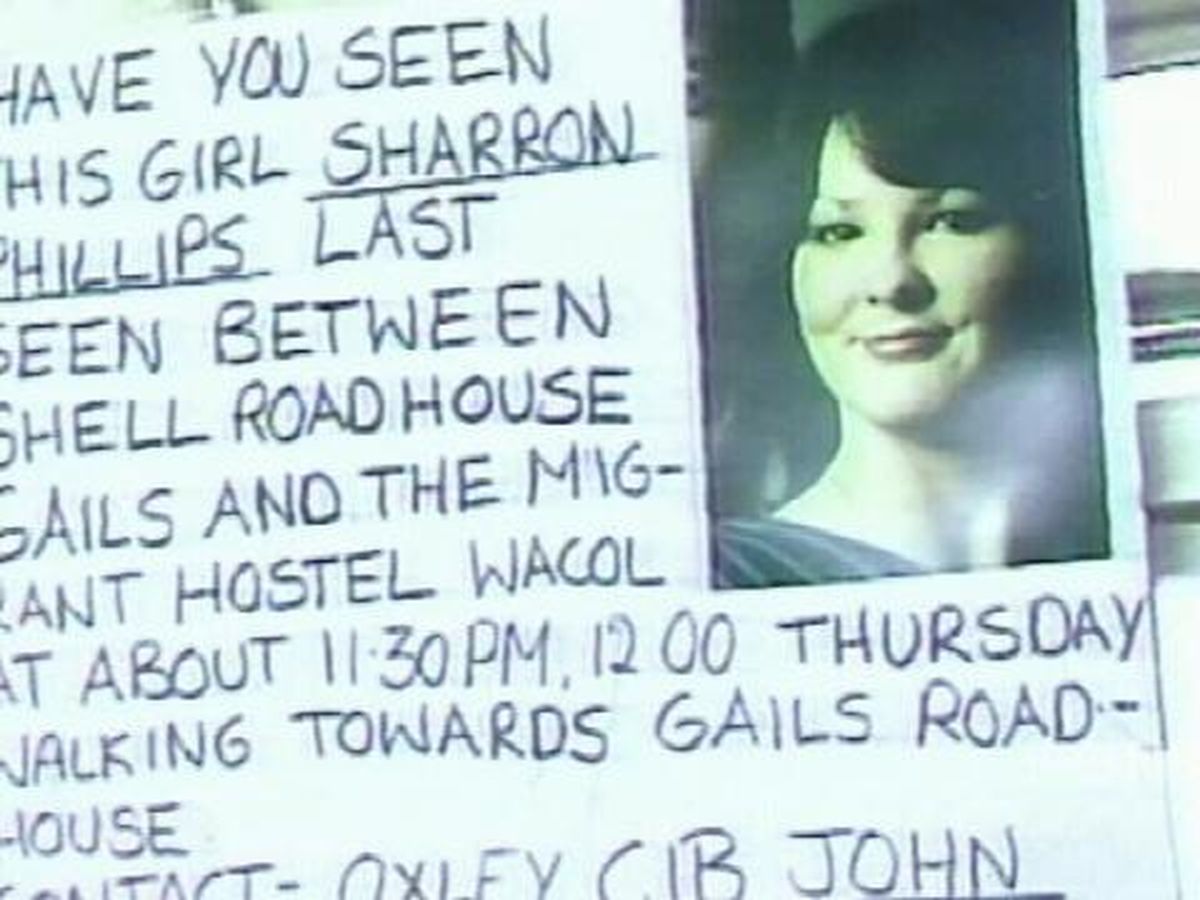 HAVE YOU SEEN
THIS GIRL SHARRON
PHILLIPS LAST
SEEN BETWEEN
SHELL ROADHOUSE
GAILS AND THE MIG-
RANT HOSTEL WACOL
AT ABOUT 11·30PM, 12 00 THURSDAY
WALKING TOWARDS GAILS ROAD--
HOUSE
CONTACT- OXLEY CIB JOHN